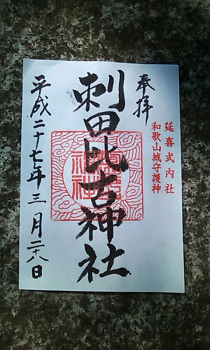 奉拝
延喜式内社
和歌山城守護神
刺田比古神社
平成二十七年三月二八日